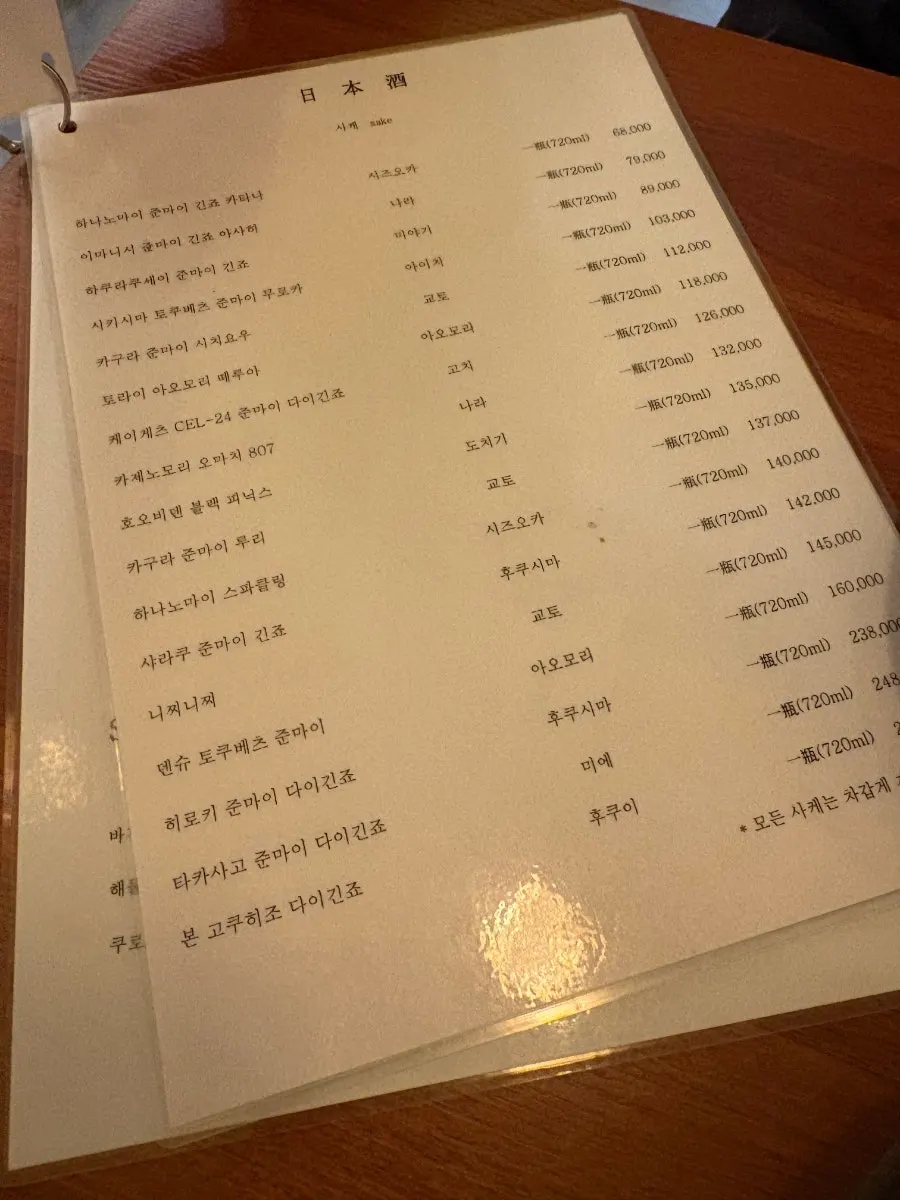 日 本 酒
사케 sake
하나노마이 준마이 긴죠 카타나 시즈오카 一瓶(720ml) 68,000
이마니시 쥰마이 긴죠 아사히 나라 一瓶(720ml) 79,000
하쿠라쿠세이 준마이 긴죠 미야기 一瓶(720ml) 89,000
시키시마 토쿠베츠 준마이 무로카 아이치 一瓶(720ml) 103,000
카구라 준마이 시치요우 교토 一瓶(720ml) 112,000
토라이 아오모리 떼루아 아오모리 一瓶(720ml) 118,000
케이게츠 CEL-24 준마이 다이긴죠 고치 一瓶(720ml) 126,000
카제노모리 오마치 807 나라 一瓶(720ml) 132,000
호오비덴 블랙 피닉스 도치기 一瓶(720ml) 135,000
카구라 준마이 루리 교토 一瓶(720ml) 137,000
하나노마이 스파클링 시즈오카 一瓶(720ml) 140,000
샤라쿠 준마이 긴죠 후쿠시마 一瓶(720ml) 142,000
니찌니찌 교토 一瓶(720ml) 145,000
덴슈 토쿠베츠 준마이 아오모리 一瓶(720ml) 160,000
히로키 준마이 다이긴죠 후쿠시마 一瓶(720ml) 238,000
타카사고 준마이 다이긴죠 미에 一瓶(720ml) 248
본 고쿠히조 다이긴죠 후쿠이 一瓶(720ml) 2
* 모든 사케는 차갑게
바
해
쿠로